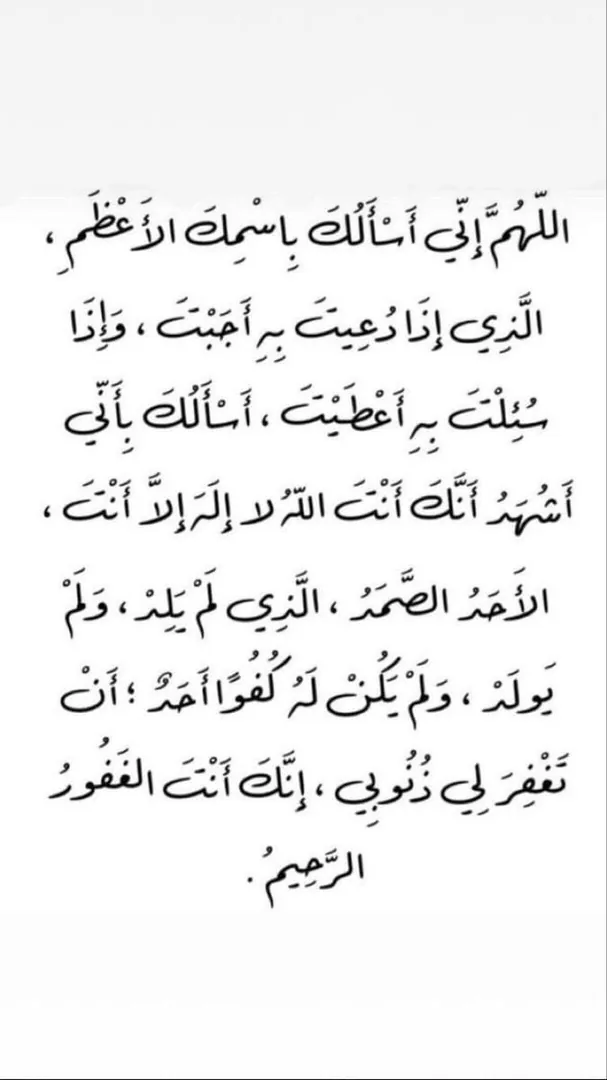 اللَّهُمَّ إِنِّي أَسْأَلُكَ بِاسْمِكَ الأَعْظَمِ ،
الَّذِي إِذَا دُعِيتَ بِهِ أَجَبْتَ ، وَإِذَا
سُئِلْتَ بِهِ أَعْطَيْتَ ، أَسْأَلُكَ بِأَنِّي
أَشْهَدُ أَنَّكَ أَنْتَ اللَّهُ لا إِلَهَ إِلاَّ أَنْتَ ،
الأَحَدُ الصَّمَدُ ، الَّذِي لَمْ يَلِدْ ، وَلَمْ
يَولَدْ ، وَلَمْ يَكُنْ لَهُ كُفُوًا أَحَدٌ ؛ أَنْ
تَغْفِرَ لِي ذُنُوبِي ، إِنَّكَ أَنْتَ الغَفُورُ
الرَّحِيمُ .